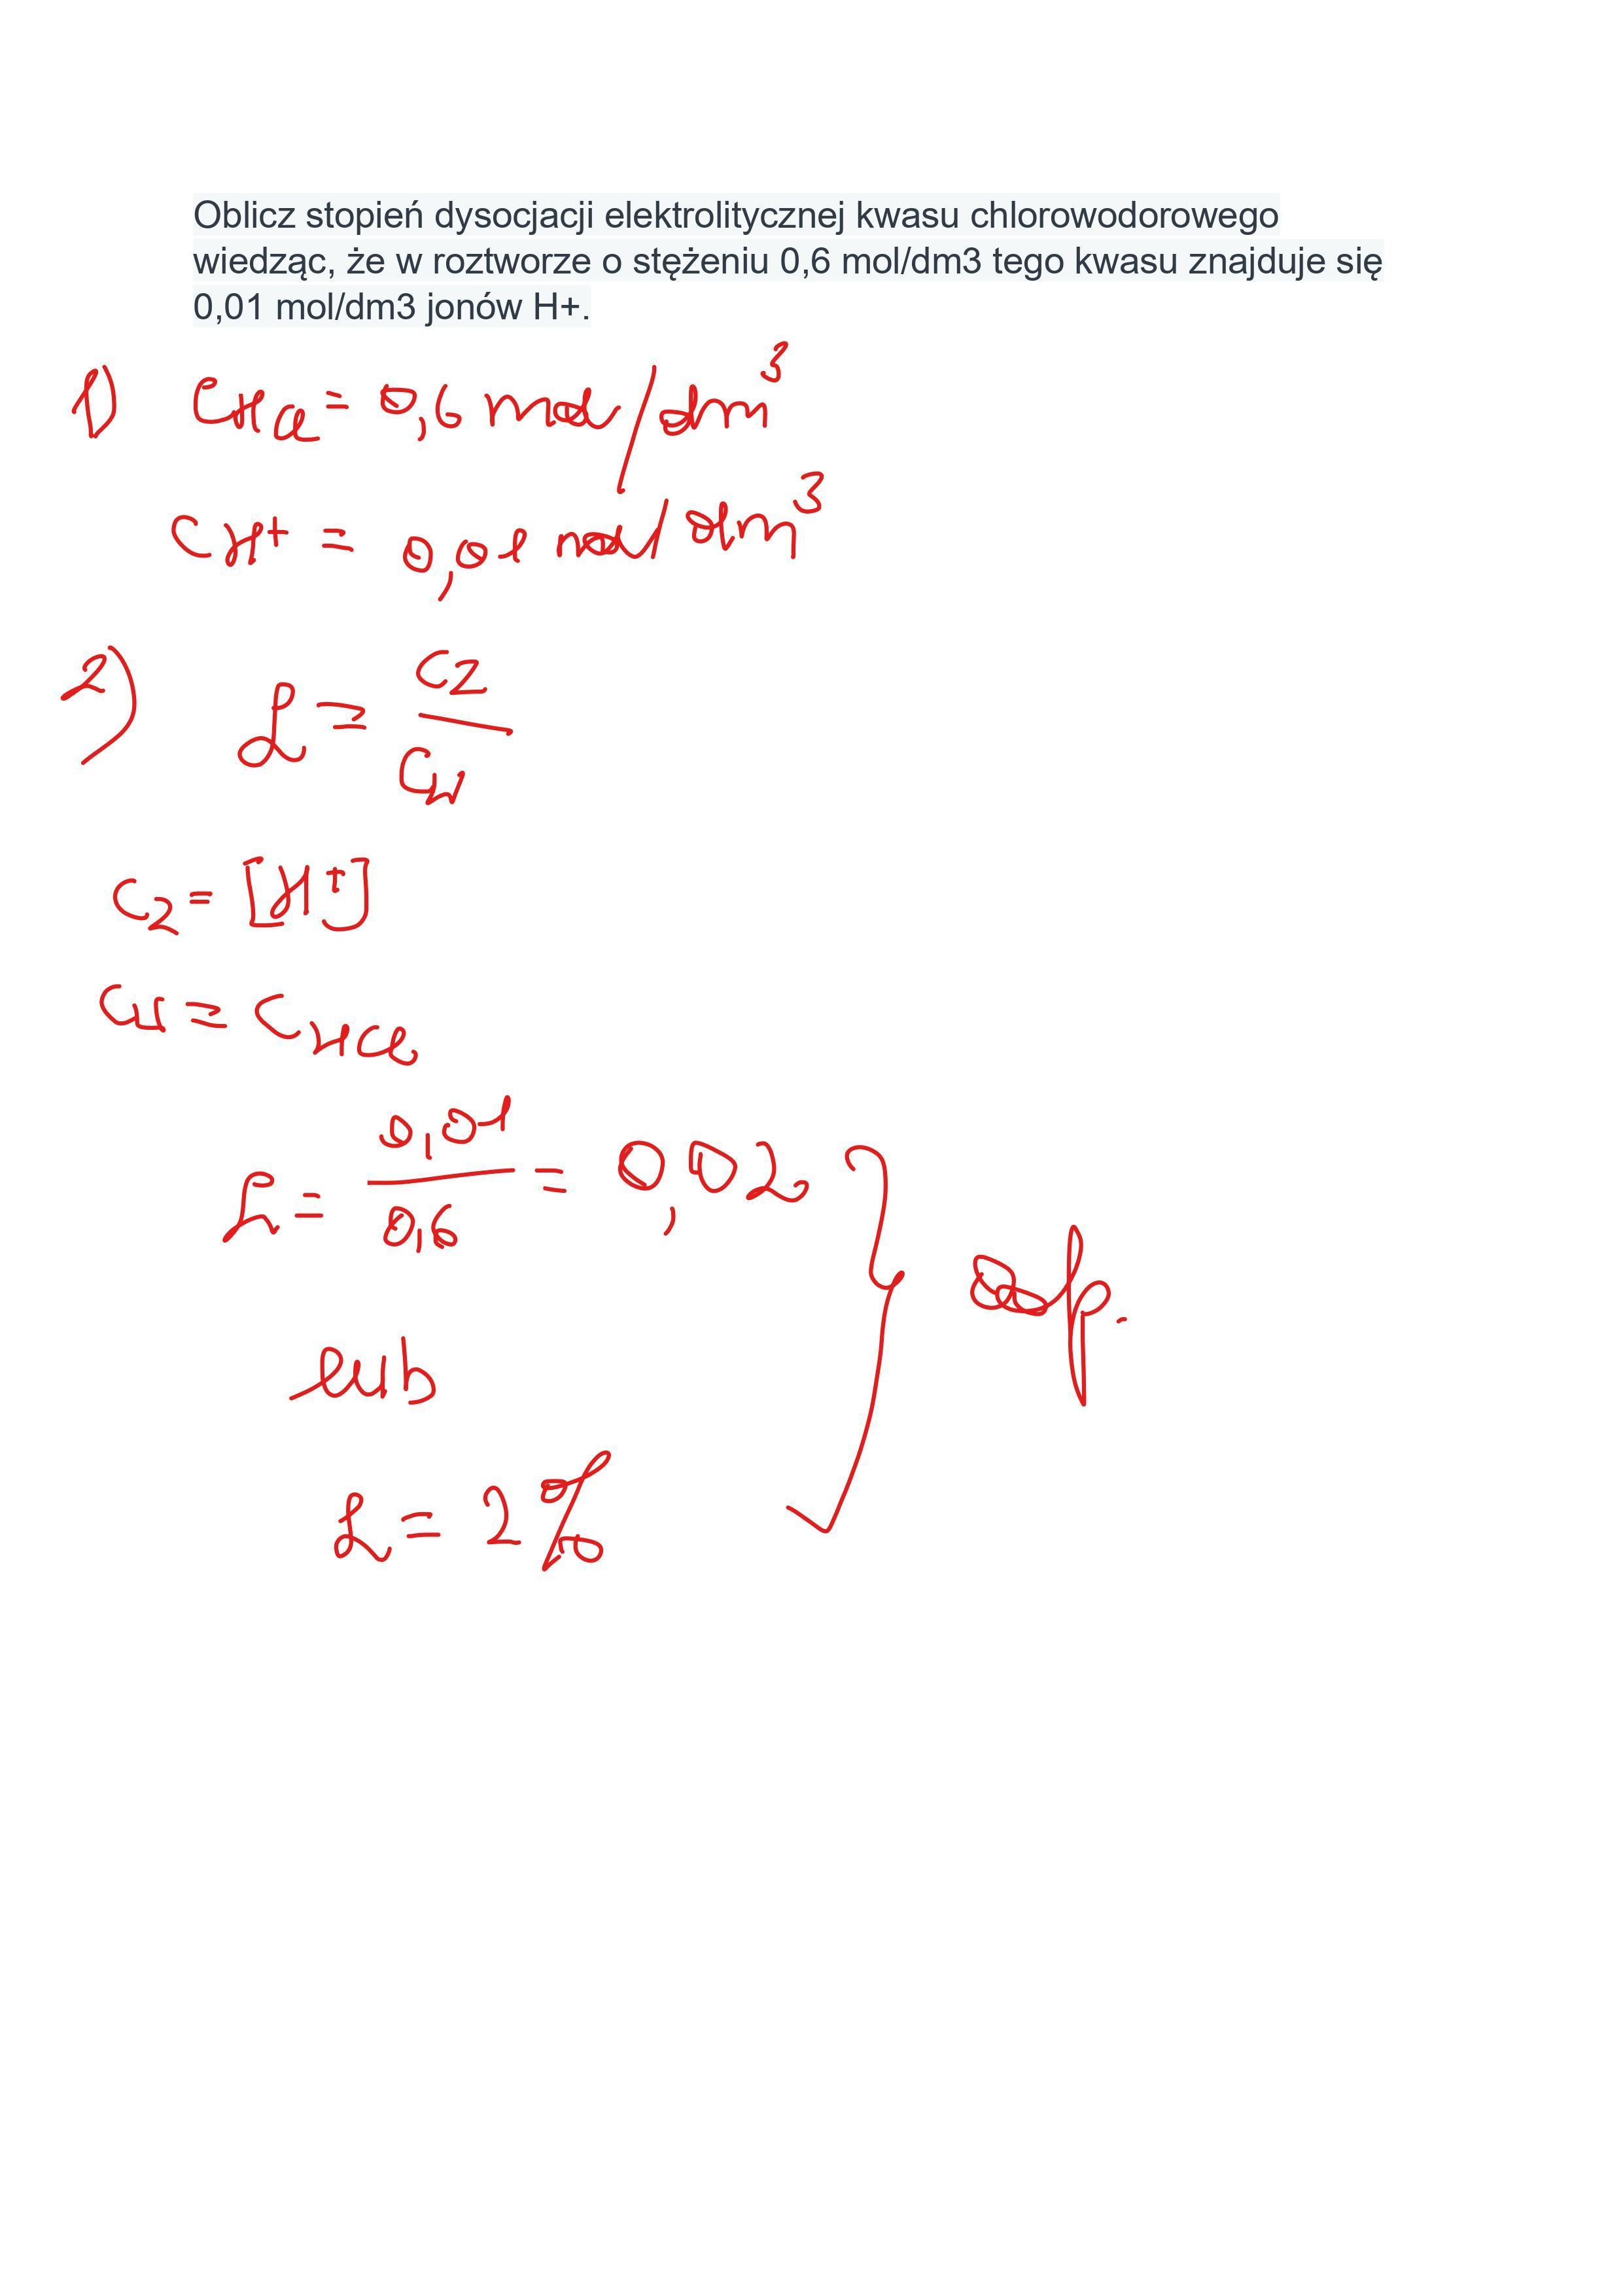 Oblicz stopień dysocjacji elektrolitycznej kwasu chlorowodorowego
wiedząc, że w roztworze o stężeniu 0,6 mol/dm3 tego kwasu znajduje się
0,01 mol/dm3 jonów H+.
1) CHCl = 0,6 mol/dm³
CH+ = 0,01 mol/dm³
2) α = Cz/Cw
Cz = [H+]
Cw = CHCl
α = 0,01/0,6 = 0,02
lub
odp.
α = 2%